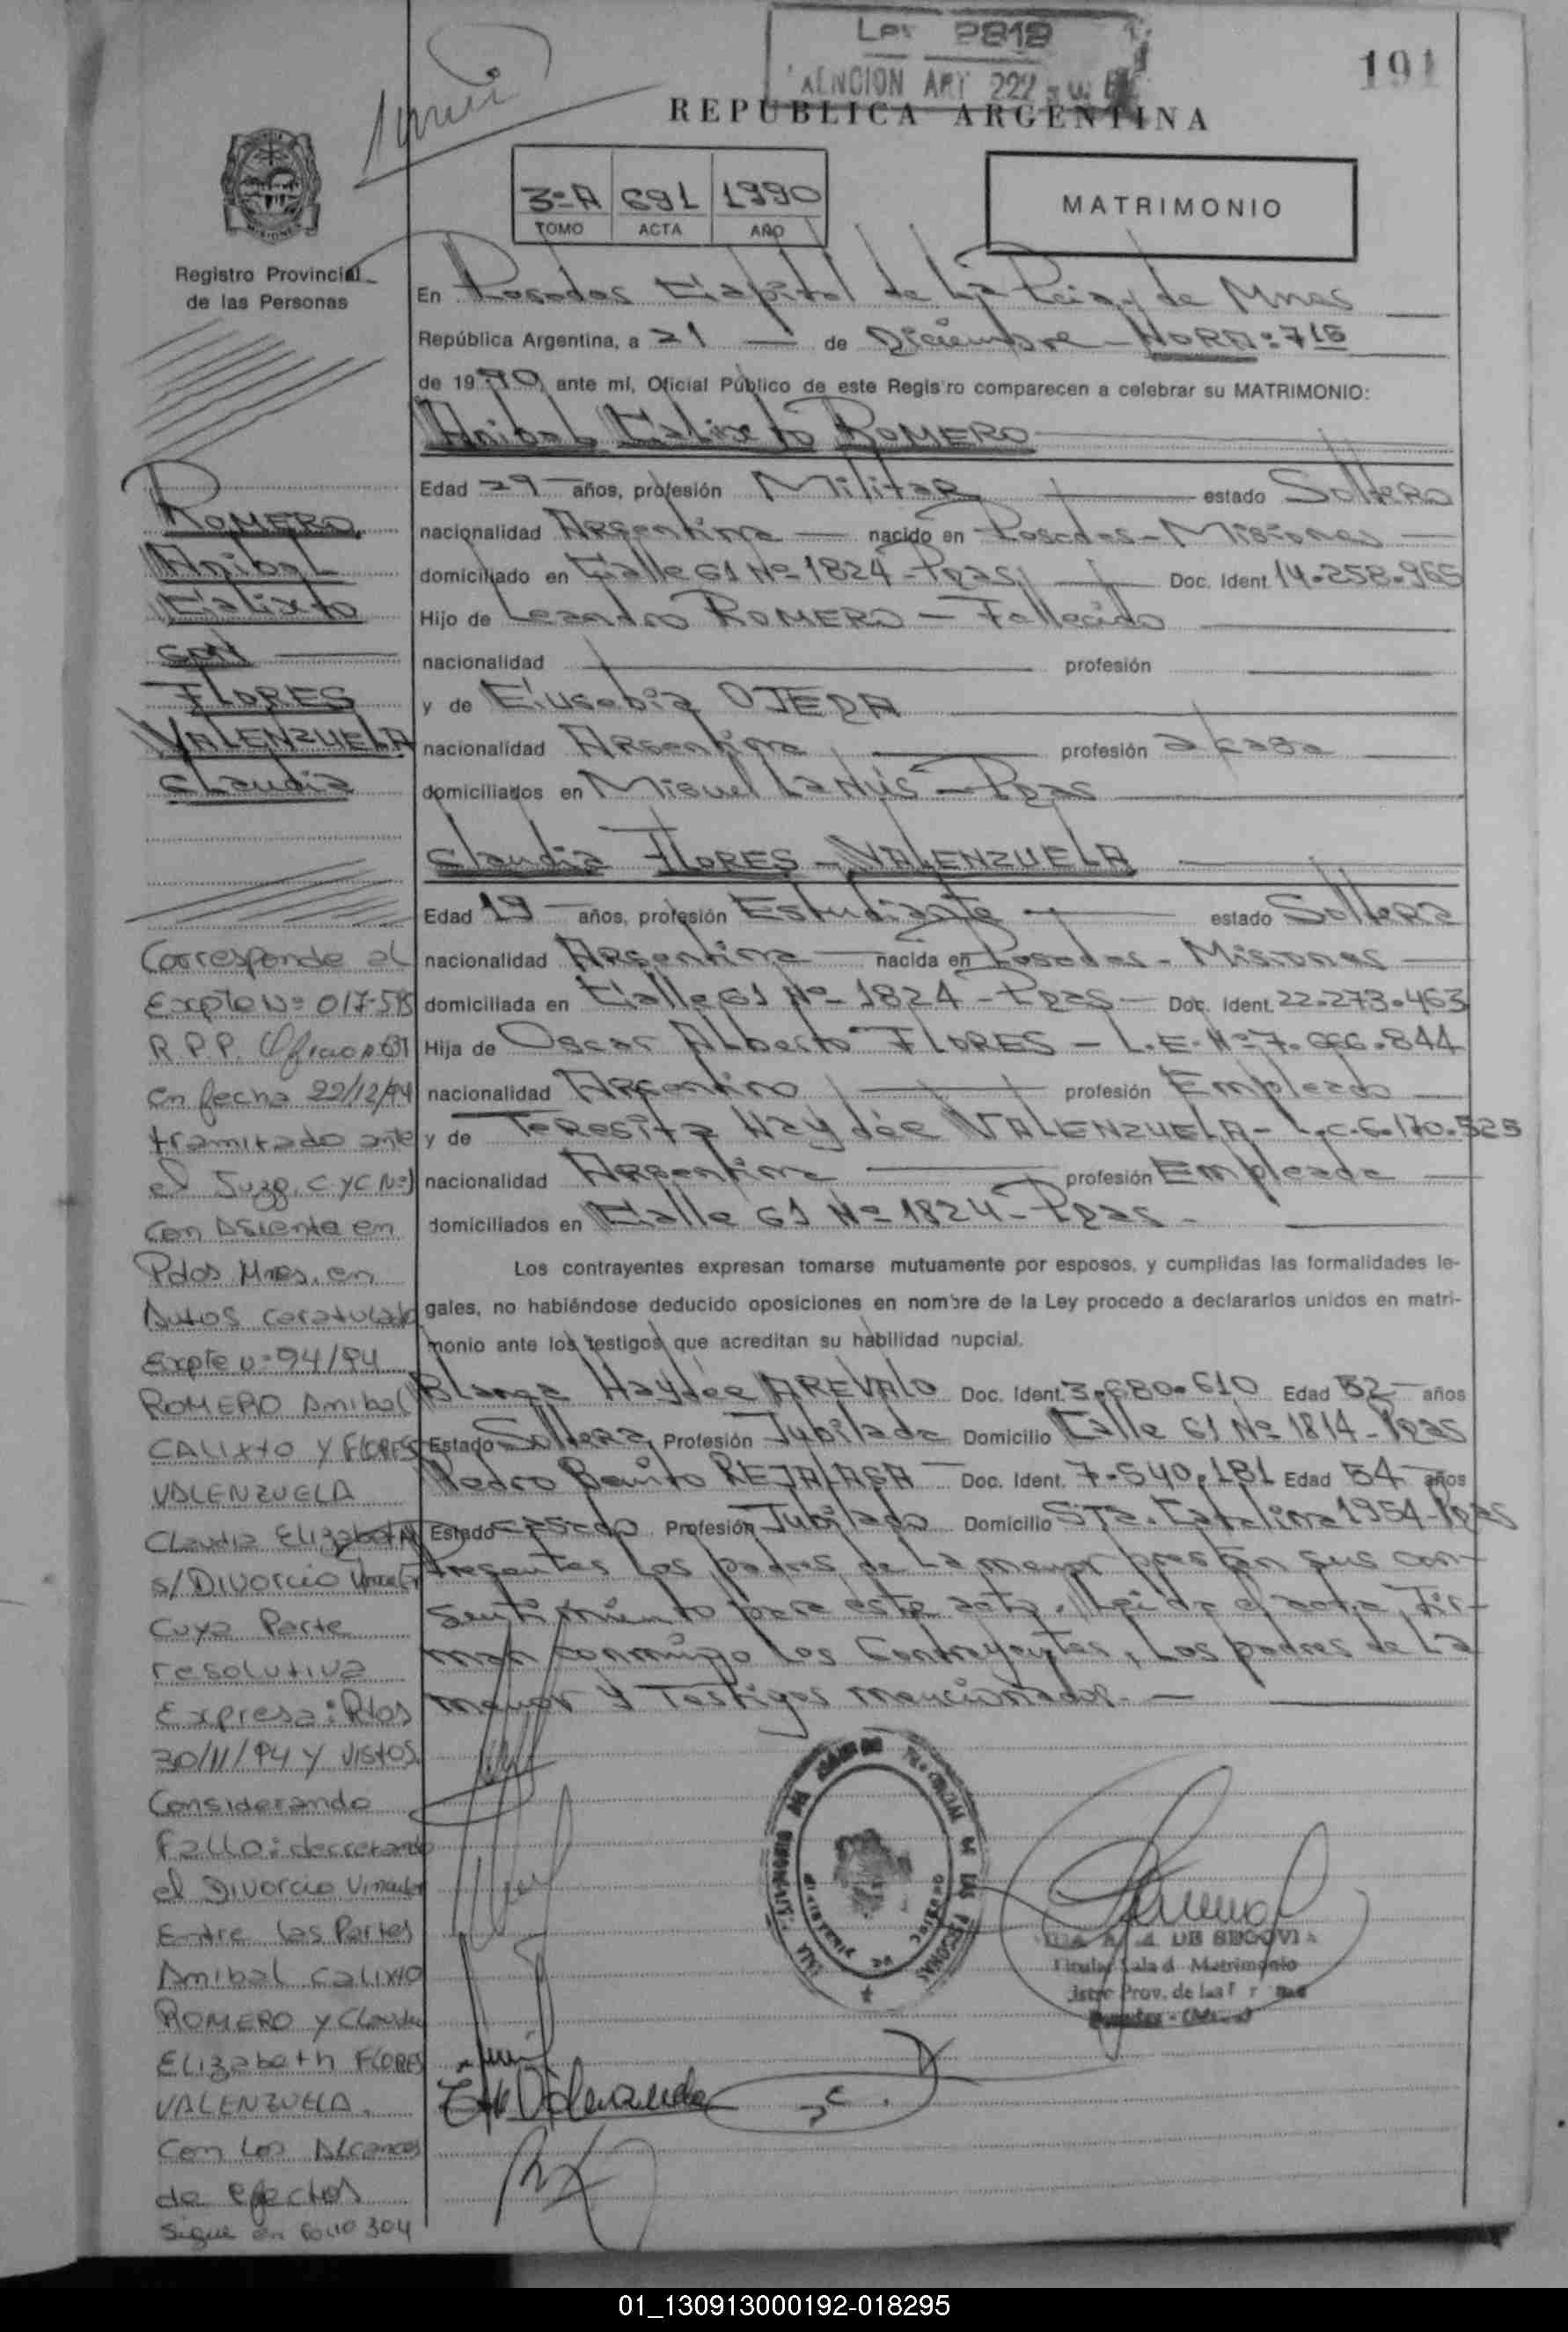 Ley 2818
ART 222
191
REPUBLICA ARGENTINA
3º A 691 1990
TOMO ACTA AÑO
MATRIMONIO
Registro Provincial
de las Personas
En Posadas Capital de La Pcia, de Mnes
República Argentina, a 21 — de Diciembre - HORA: 715
de 1990, ante mí, Oficial Público de este Registro comparecen a celebrar su MATRIMONIO:
Anibal Calixto ROMERO
Edad 29 años, profesión Militar estado Soltero
nacionalidad Argentina nacido en Posadas - Misiones
domiciliado en Calle 61 Nº 1824 - Pdas Doc. Ident. 14.258.965
Hijo de Leandro ROMERO - Fallecido
nacionalidad profesión
y de Eusebia OJEDA
nacionalidad Argentina profesión a casa
domiciliados en Miguel Lanús - Pdas
Claudia FLORES - VALENZUELA
Edad 19 años, profesión Estudiante estado Soltera
nacionalidad Argentina nacida en Posadas - Misiones
domiciliada en Calle 61 Nº 1824 - Pdas - Doc. Ident. 22.273.463
Hija de Oscar Alberto FLORES - L.E. Nº 7.666.844
nacionalidad Argentino profesión Empleado
y de Teresita Haydée VALENZUELA - L.C. 6.170.525
nacionalidad Argentina profesión Empleada
domiciliados en Calle 61 Nº 1824 - Pdas -
Los contrayentes expresan tomarse mutuamente por esposos, y cumplidas las formalidades le-
gales, no habiéndose deducido oposiciones en nombre de la Ley procedo a declararlos unidos en matri-
monio ante los testigos que acreditan su habilidad nupcial.
Blanca Haydée AREVALO Doc. Ident. 3.680.610 Edad 52 años
Estado Soltera Profesión Jubilada Domicilio Calle 61 Nº 1814 - Pdas
Pedro Benito REJALAGA Doc. Ident. 7.540.181 Edad 54 años
Estado casado Profesión Jubilado Domicilio Sta. Catalina 1954 - Pdas
Presentes los padres de la menor prestan sus con-
sentimiento para este acto. Leída el acta, Fir-
man conmigo los Contrayentes, los padres de la
menor y Testigos mencionados. —
ROMERO
Anibal
Calixto
con
FLORES
VALENZUELA
Claudia
Corresponde al
Expte Nº 017-515
R.P.P. Oficio
en fecha 22/12/94
tramitado ante
el Juzg. C y C Nº 1
con Asiento en
Pdas Mnes. en
Autos caratulado
Expte nº 94/94
ROMERO Anibal
CALIXTO Y FLORES
VALENZUELA
Claudia Elizabeth
s/ Divorcio Vincular
Cuya Parte
resolutiva
Expresa: Pdas
30/11/94 y Vistos
Considerando
Fallo: decretando
el Divorcio Vincular
Entre las Partes
Anibal Calixto
ROMERO y Claudia
Elizabeth FLORES
VALENZUELA.
Con los Alcances
de efectos
Sigue en Folio 304
DE SEGOVIA
Titular Sala d Matrimonio
Prov. de las
01_130913000192-018295